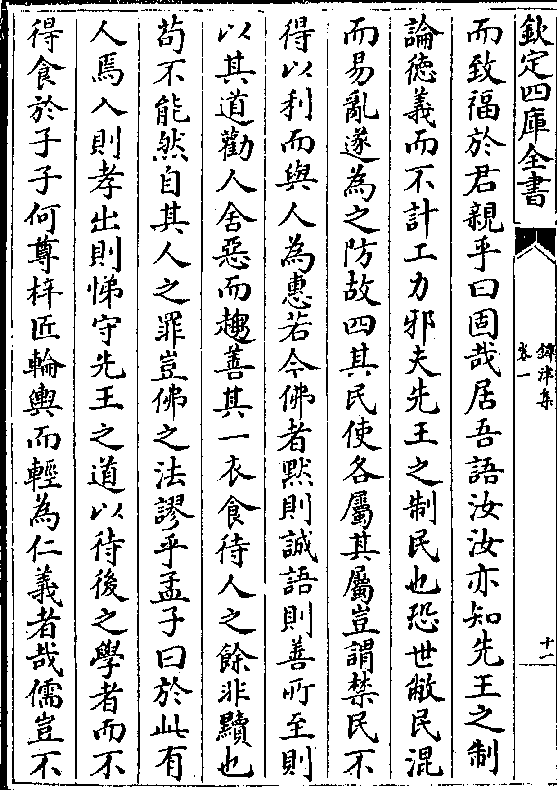 欽定四庫全書
鐔津集
卷一
十一
而致福於君親乎曰固哉居吾語汝汝亦知先王之制
論徳義而不計工力邪夫先王之制民也恐世敝民混
而易亂遂為之防故四其民使各屬其屬豈謂禁民不
得以利而與人為惠若今佛者黙則誠語則善所至則
以其道勸人舍惡而趨善其一衣食待人之餘非黷也
茍不能然自其人之罪豈佛之法謬乎孟子曰於此有
人焉入則孝出則悌守先王之道以待後之學者而不
得食於子子何尊梓匠輪輿而輕為仁義者哉儒豈不